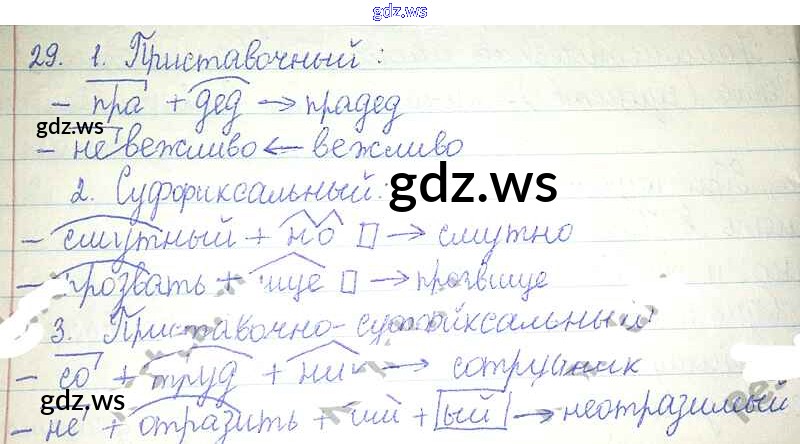 gdz.ws
29. 1. Приставочный:
- пра + дед → прадед
gdz.ws
- не вежливо ← вежливо
2. Суффиксальный:
gdz.ws
- смутный + но □ → смутно
- прозвать + ище □ → прозвище
3. Приставочно-суффиксальный
- со + труд + ник → сотрудник
gdz.ws
- не + отразить + им + ый → неотразимый